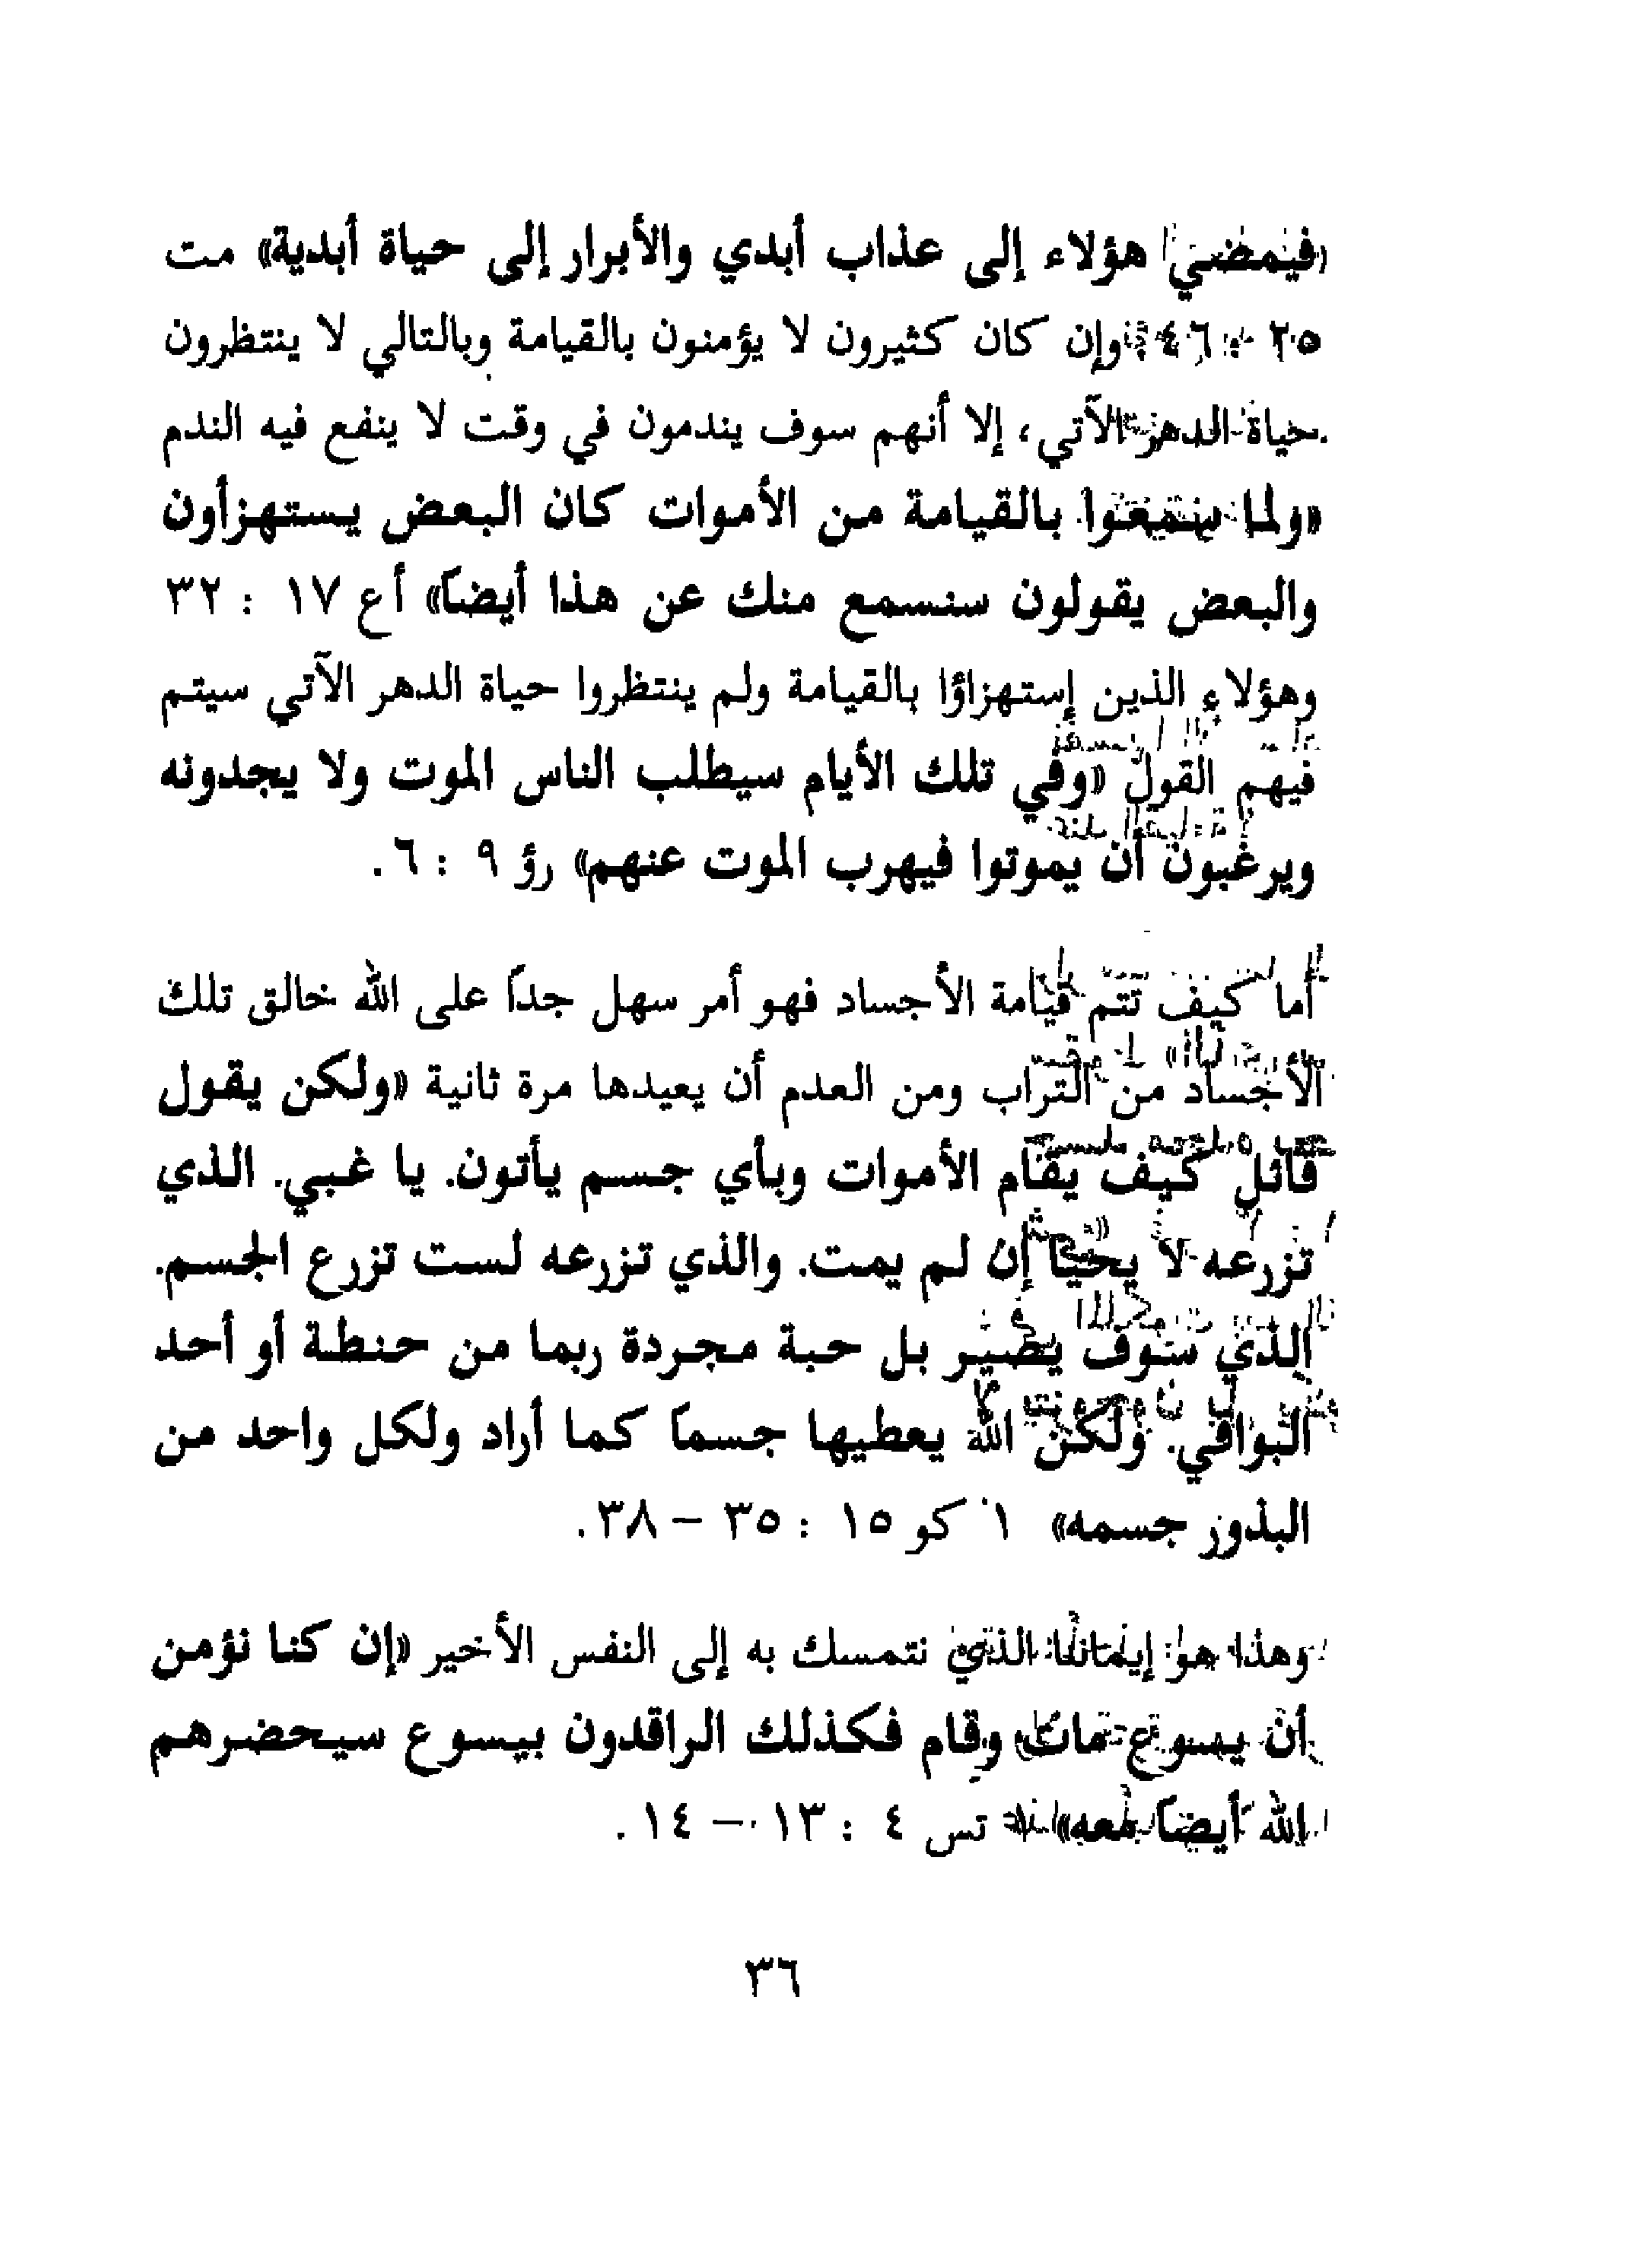 «فيمضي هؤلاء إلى عذاب أبدي والأبرار إلى حياة أبدية» مت
٢٥ : ٤٦ وإن كان كثيرون لا يؤمنون بالقيامة وبالتالي لا ينتظرون
حياة الدهر الآتي، إلا أنهم سوف يندمون في وقت لا ينفع فيه الندم
«ولما سمعوا بالقيامة من الأموات كان البعض يستهزأون
والبعض يقولون سنسمع منك عن هذا أيضاً» أع ١٧ : ٣٢
وهؤلاء الذين إستهزاؤا بالقيامة ولم ينتظروا حياة الدهر الآتي سيتم
فيهم القول «وفي تلك الأيام سيطلب الناس الموت ولا يجدونه
ويرغبون أن يموتوا فيهرب الموت عنهم» رؤ ٩ : ٦.
أما كيف تتم قيامة الأجساد فهو أمر سهل جداً على الله خالق تلك
الأجساد من التراب ومن العدم أن يعيدها مرة ثانية «ولكن يقول
قائل كيف يقام الأموات وبأي جسم يأتون. يا غبي. الذي
تزرعه لا يحيا إن لم يمت. والذي تزرعه لست تزرع الجسم.
الذي سوف يصير بل حبة مجردة ربما من حنطة أو أحد
البواقي. ولكن الله يعطيها جسماً كما أراد ولكل واحد من
البذور جسمه» ١ كو ١٥ : ٣٥ – ٣٨.
وهذا هو إيماننا الذي نتمسك به إلى النفس الأخير «إن كنا نؤمن
أن يسوع مات وقام فكذلك الراقدون بيسوع سيحضرهم
الله أيضاً معه» ١ تس ٤ : ١٣ – ١٤.
٣٦